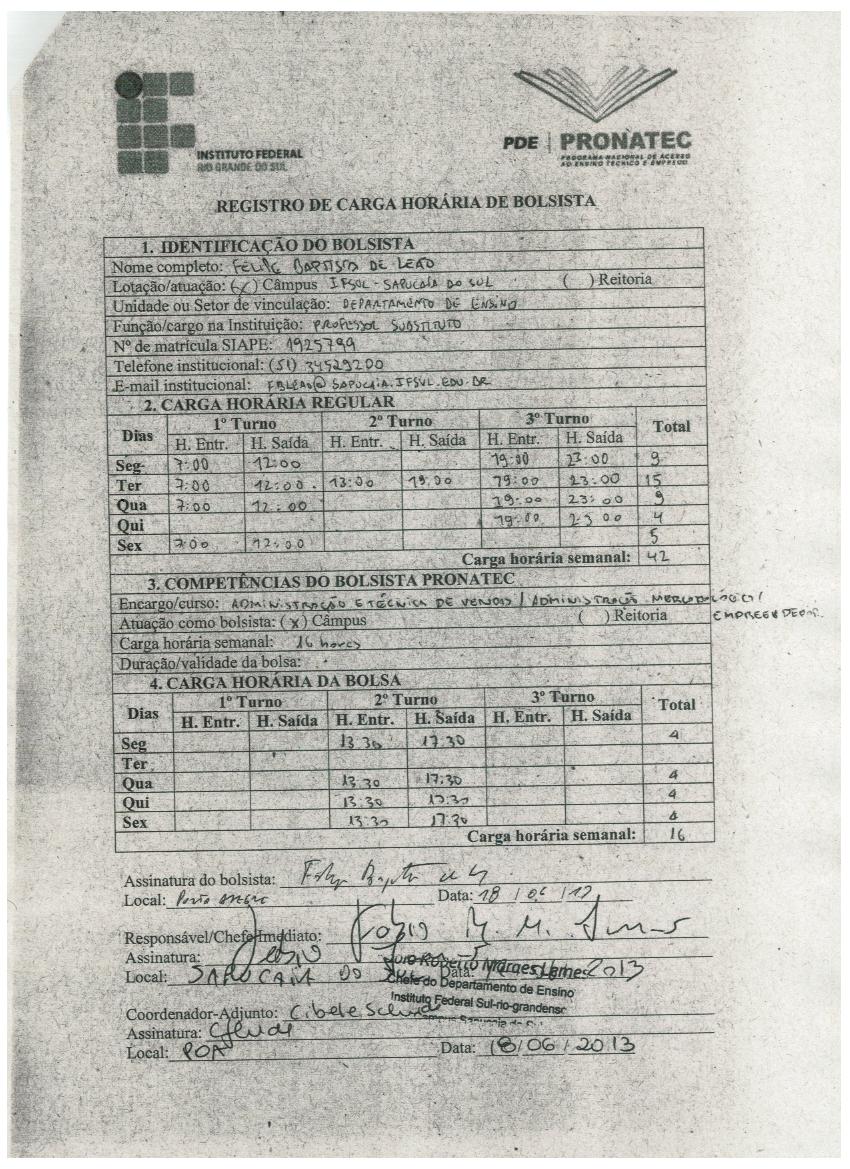 INSTITUTO FEDERAL
RIO GRANDE DO SUL
PDE | PRONATEC
PROGRAMA NACIONAL DE ACESSO
AO ENSINO TÉCNICO E EMPREGO
REGISTRO DE CARGA HORÁRIA DE BOLSISTA
1. IDENTIFICAÇÃO DO BOLSISTA
Nome completo: FELIPE BAPTISTA DE LEÃO
Lotação/atuação: (x) Câmpus IFSUL - SAPUCAIA DO SUL ( ) Reitoria
Unidade ou Setor de vinculação: DEPARTAMENTO DE ENSINO
Função/cargo na Instituição: PROFESSOR SUBSTITUTO
Nº de matrícula SIAPE: 1925799
Telefone institucional: (51) 34529200
E-mail institucional: FBLEAO@SAPUCAIA.IFSUL.EDU.BR
2. CARGA HORÁRIA REGULAR
Dias 1º Turno 2º Turno 3º Turno Total
H. Entr. H. Saída H. Entr. H. Saída H. Entr. H. Saída
Seg 7:00 12:00 19:00 23:00 9
Ter 7:00 12:00 13:00 19:00 19:00 23:00 15
Qua 7:00 12:00 19:00 23:00 9
Qui 19:00 23:00 4
Sex 7:00 12:00 5
Carga horária semanal: 42
3. COMPETÊNCIAS DO BOLSISTA PRONATEC
Encargo/curso: ADMINISTRAÇÃO E TÉCNICA DE VENDAS / ADMINISTRAÇÃO MERCADOLÓGICA /
EMPREENDEDOR.
Atuação como bolsista: (x) Câmpus ( ) Reitoria
Carga horária semanal: 16 horas
Duração/validade da bolsa:
4. CARGA HORÁRIA DA BOLSA
Dias 1º Turno 2º Turno 3º Turno Total
H. Entr. H. Saída H. Entr. H. Saída H. Entr. H. Saída
Seg 13:30 17:30 4
Ter
Qua 13:30 17:30 4
Qui 13:30 17:30 4
Sex 13:30 17:30 4
Carga horária semanal: 16
Assinatura do bolsista:
Local: Porto Alegre Data: 18 / 06 / 13
Responsável/Chefe Imediato: Fábio
Assinatura:
Roberto Moraes Lemes
Local: SAPUCAIA DO SUL Data: 2013
Chefe do Departamento de Ensino
Instituto Federal Sul-rio-grandense
Coordenador-Adjunto: Cibele
Assinatura:
Local: POA Data: 18/06/2013